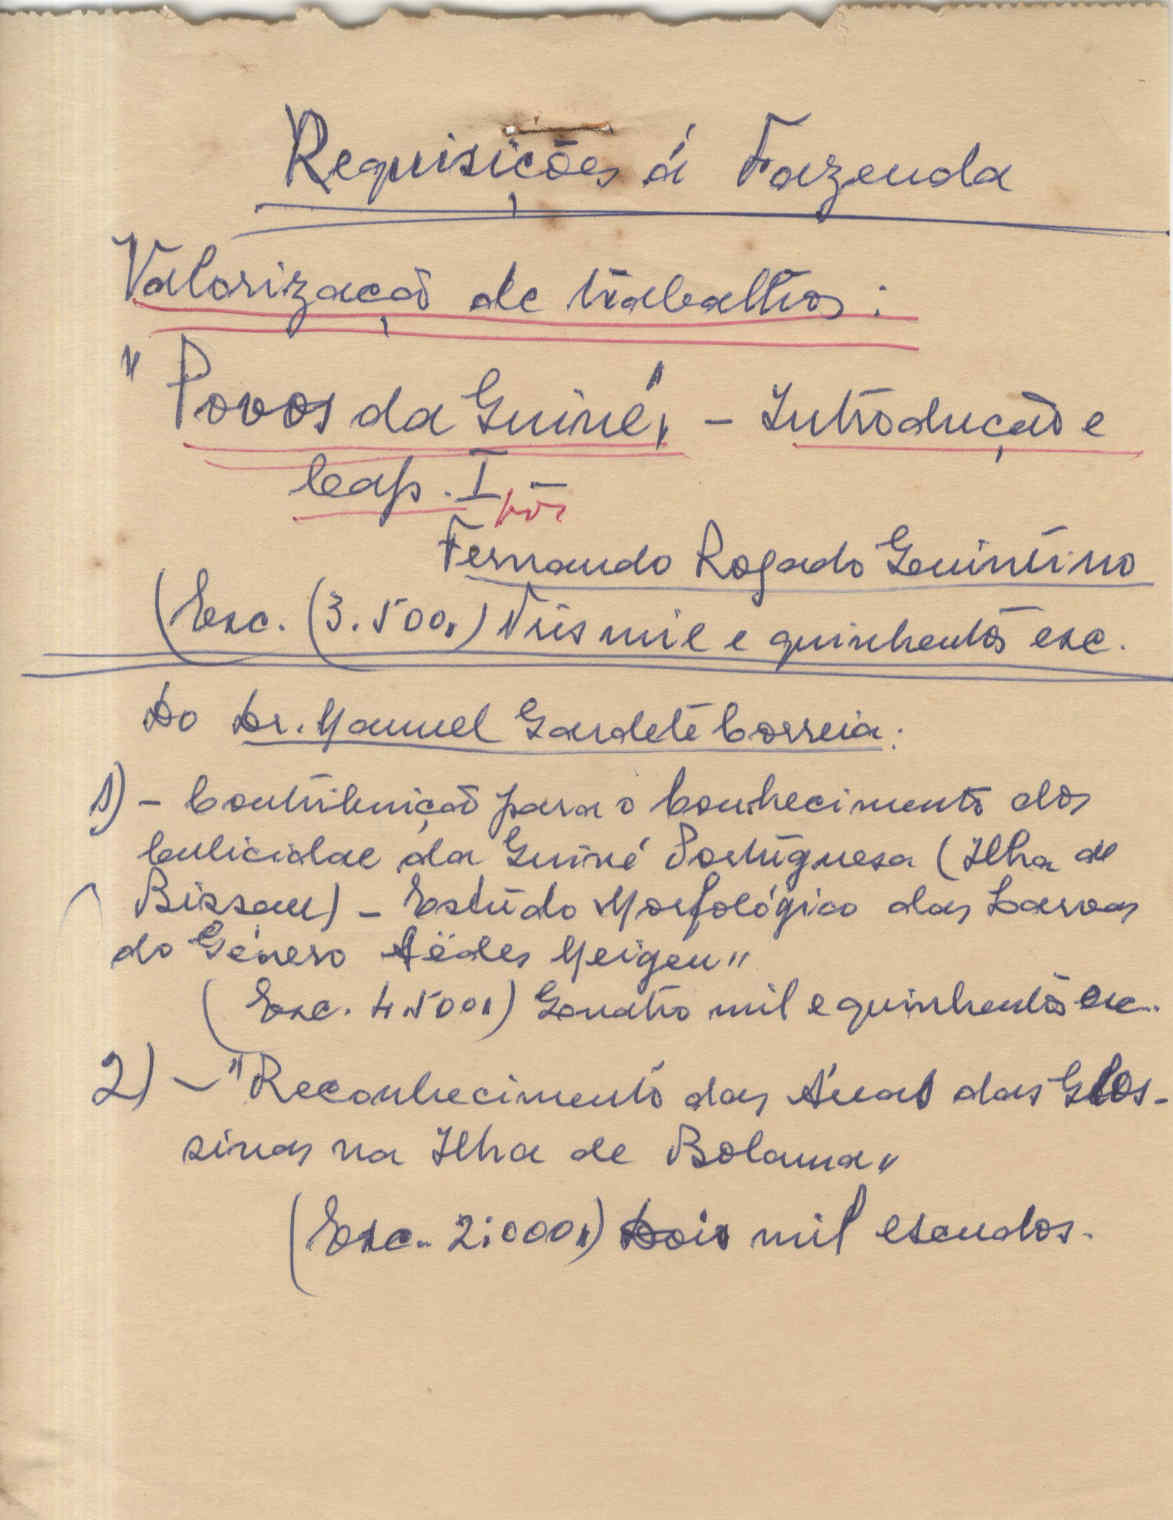 Requisições á Fazenda
Valorização de trabalhos:
"Povos da Guiné" - Introdução e
Cap. I - por
Fernando Rogado Quintino
(Esc. (3.500,,) Três mil e quinhentos esc.
Do Dr. Manuel Gardete Correia:
1) - Contribuição para o Conhecimento dos
Culicidae da Guiné Portuguesa (Ilha de
Bissau) - Estudo Morfológico das Larvas
do Género Aëdes Meigen"
(Esc. 4.500,,) Quatro mil e quinhentos esc.
2) - "Reconhecimento das Áreas das Glos-
sinas na Ilha de Bolama"
(Esc. 2:000,,) Dois mil escudos.